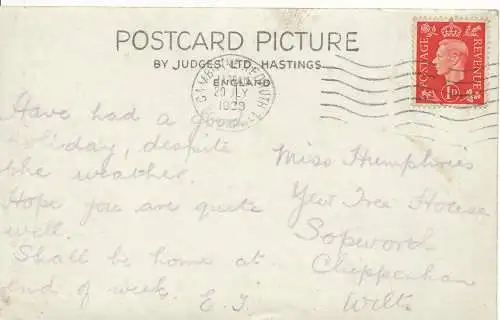 POSTCARD PICTURE
BY JUDGES LTD, HASTINGS
ENGLAND
POSTAGE REVENUE
1D
20 JLY
1939
Have had a good
holiday, despite
the weather.
Hope you are quite
well.
Shall be home at
end of week. E. J.
Miss Humphries
Yew Tree House
Sopworth
Chippenham
Wilts